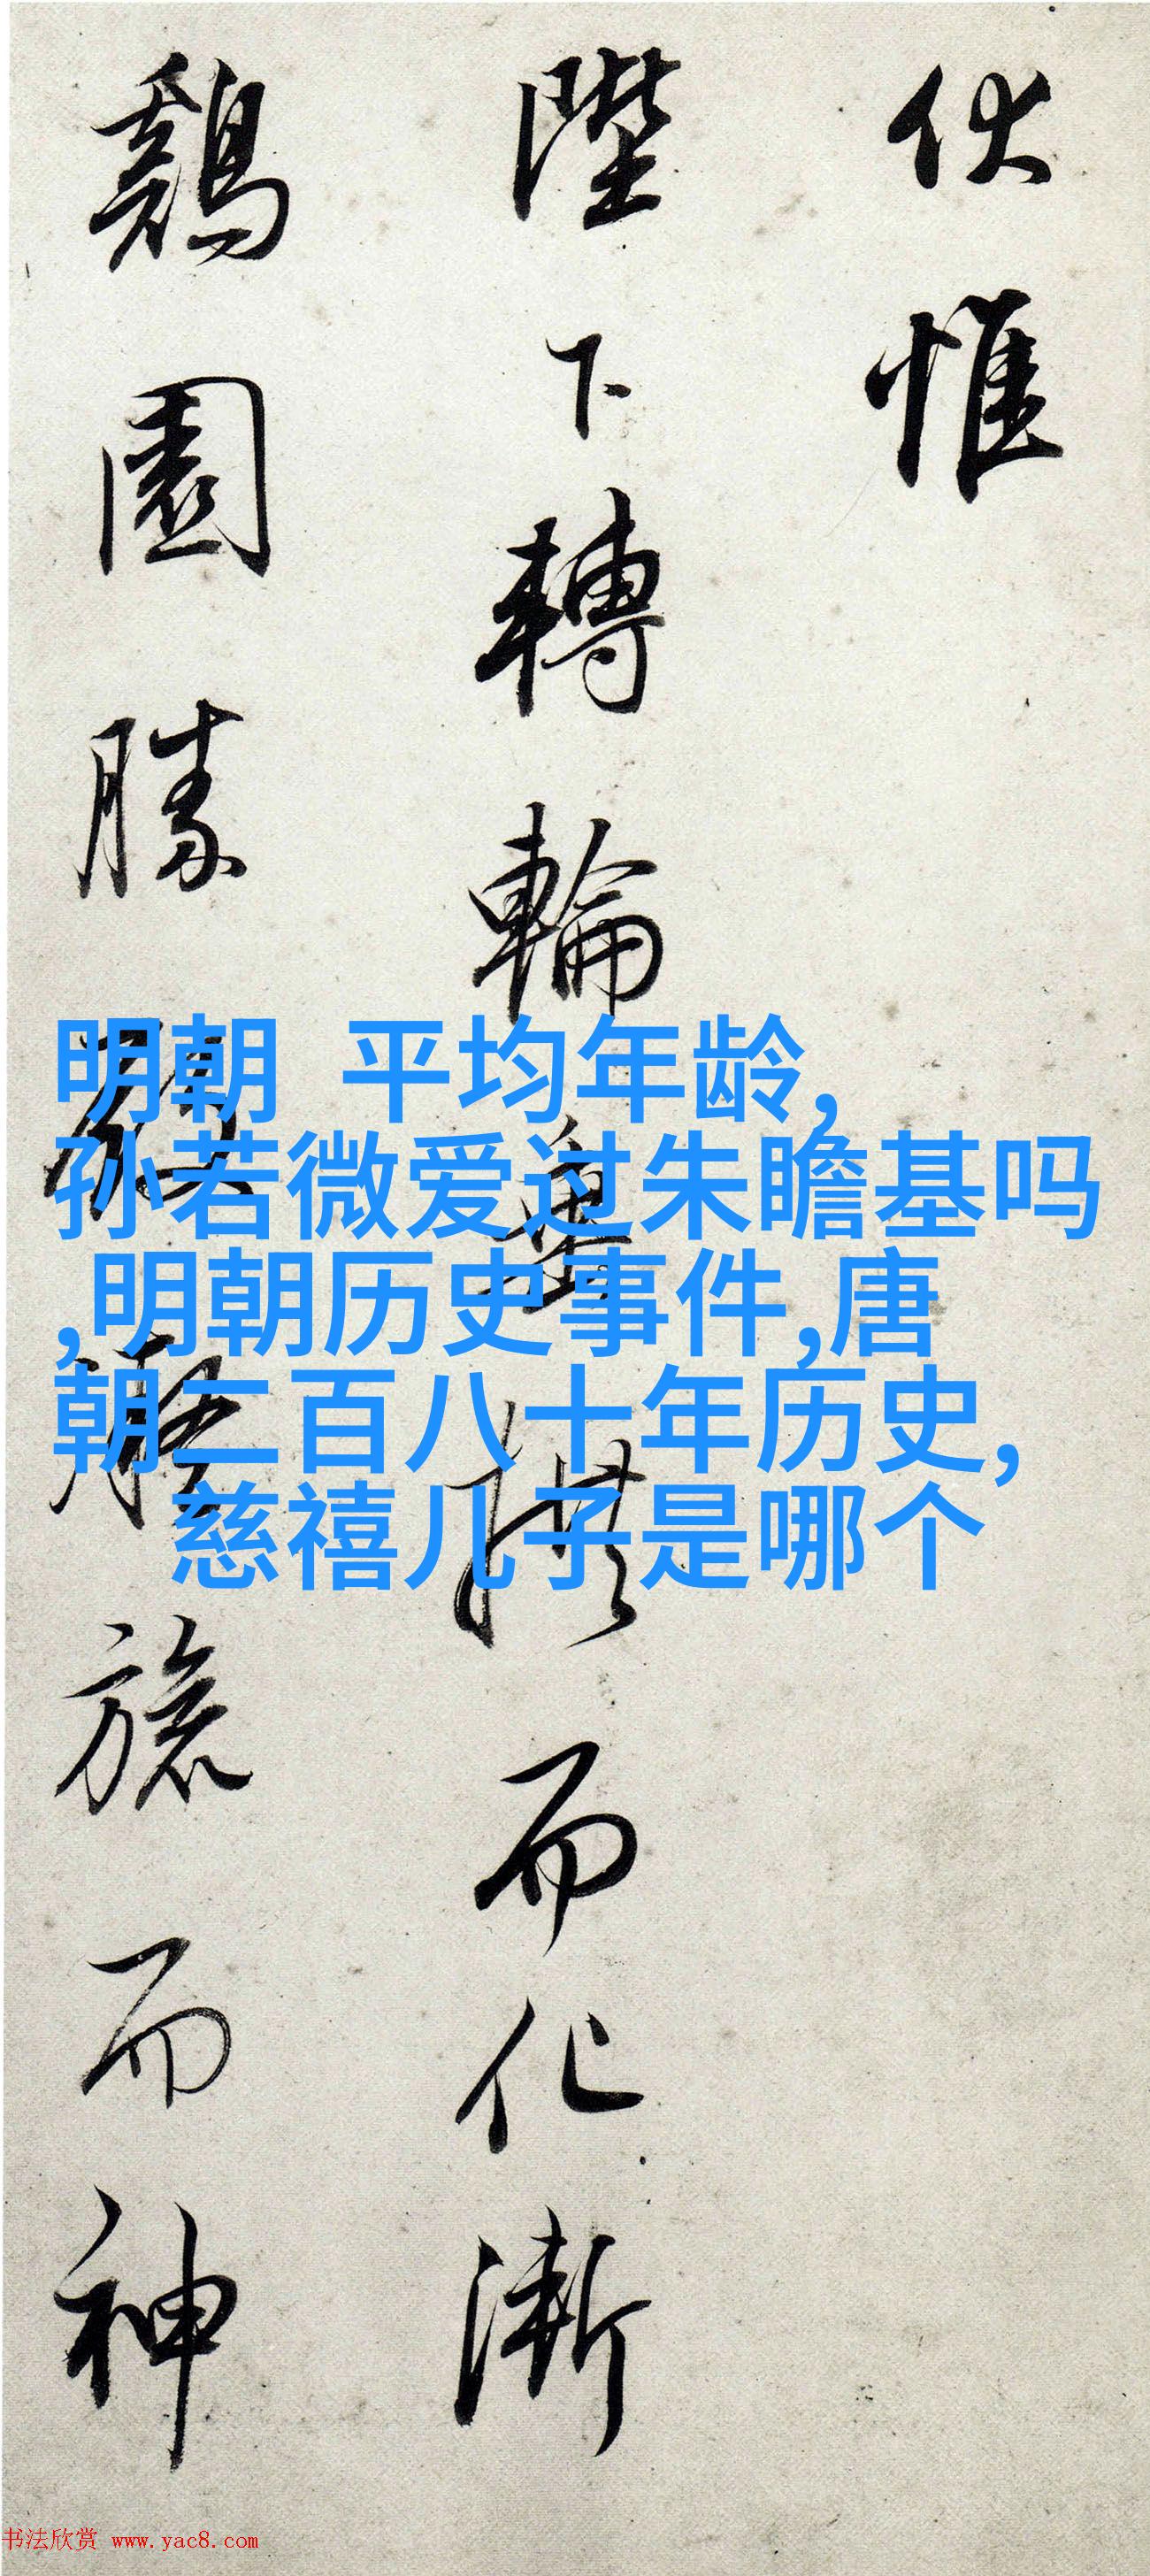 伏惟
陛下轉輪
而化漸
鷄園勝
旅而神
明朝 平均年龄,
孙若微爱过朱瞻基吗
,明朝历史事件,唐
朝二百八十年历史,
慈禧儿子是哪个
书法欣赏 www.yac8.com